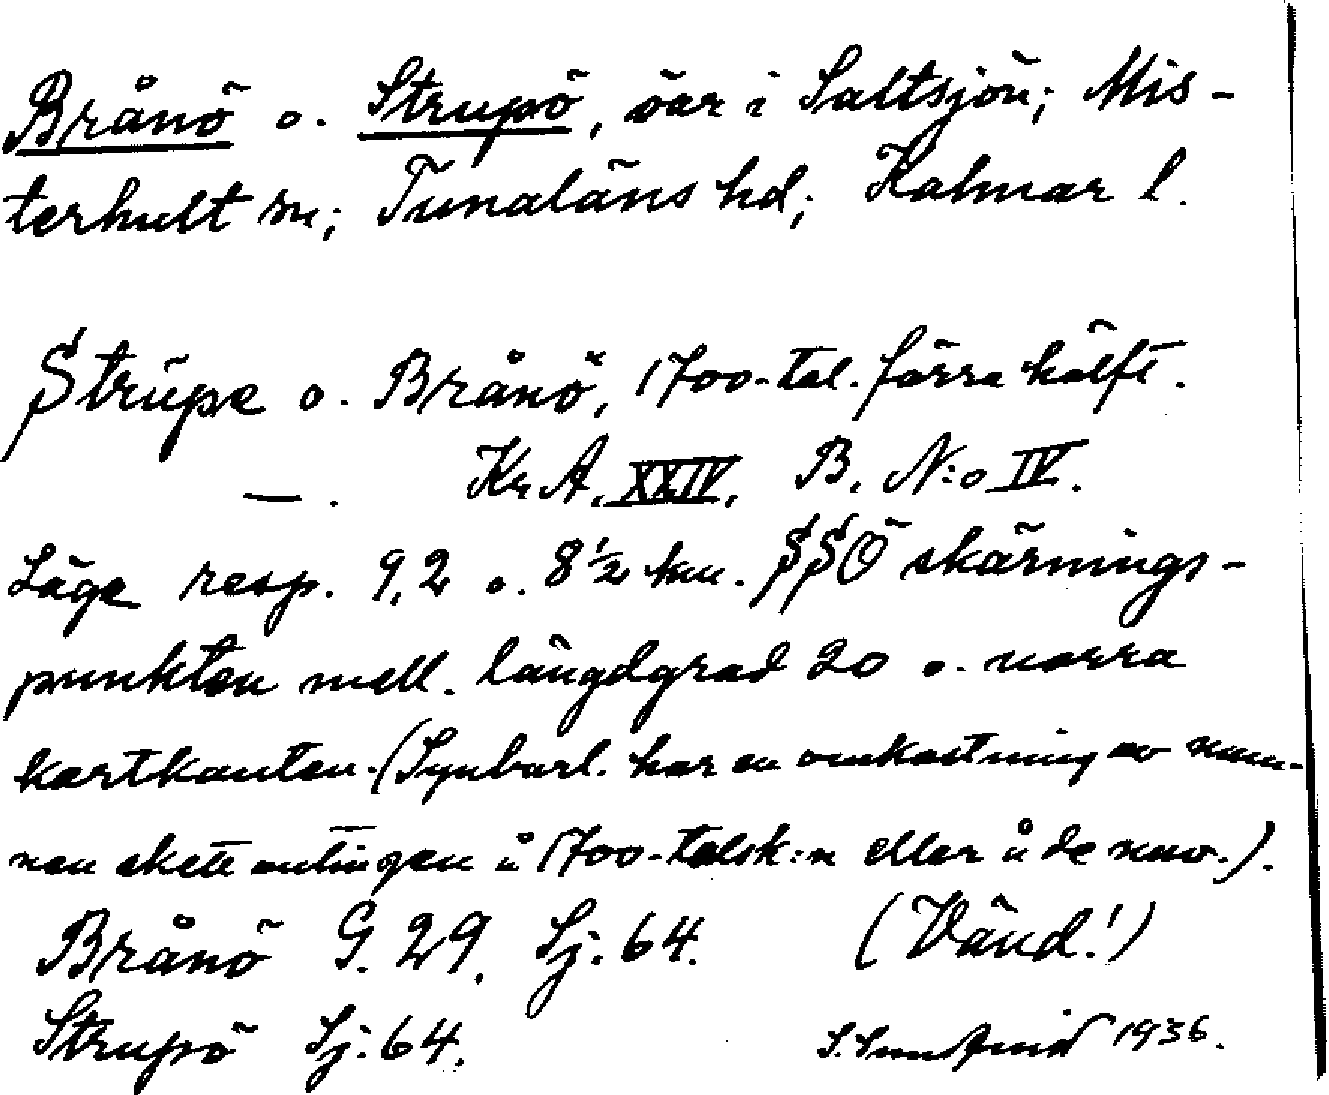 Brånö o. Strupö, öar i Saltsjön; Mis-
terhult sn; Tunaläns hd; Kalmar l.
Strupe o. Brånö, 1700-tal. förra hälft.
—. Kr. A. XXIV, B. N:o IV.
Läge resp. 9,2 o. 8 1/2 km. SSÖ skärnings-
punkten mell. längdgrad 20 o. norra
kartkanten. (Synbarl. har en omkastning av nam-
nen skett antingen å 1700-talsk:n eller å de nuv.).
Brånö G. 29. Sj. 64. (Vänd!)
Strupö Sj. 64.
1936.